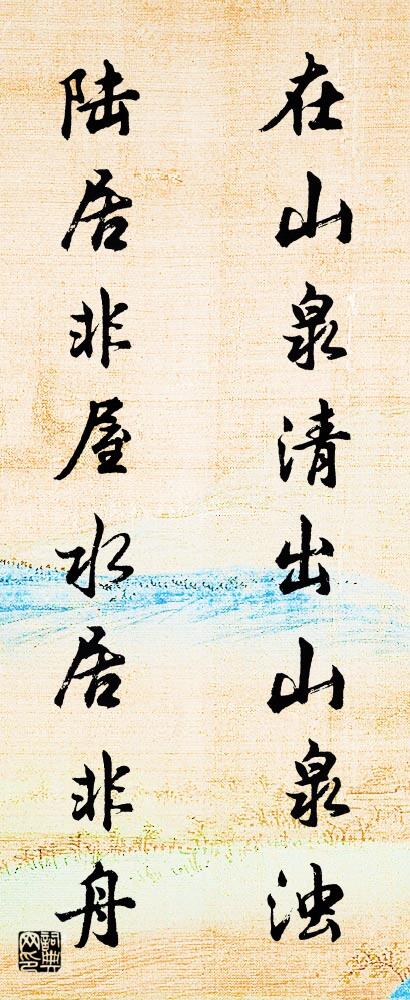 在山泉清出山泉浊
陆居非屋水居非舟
詞典網印